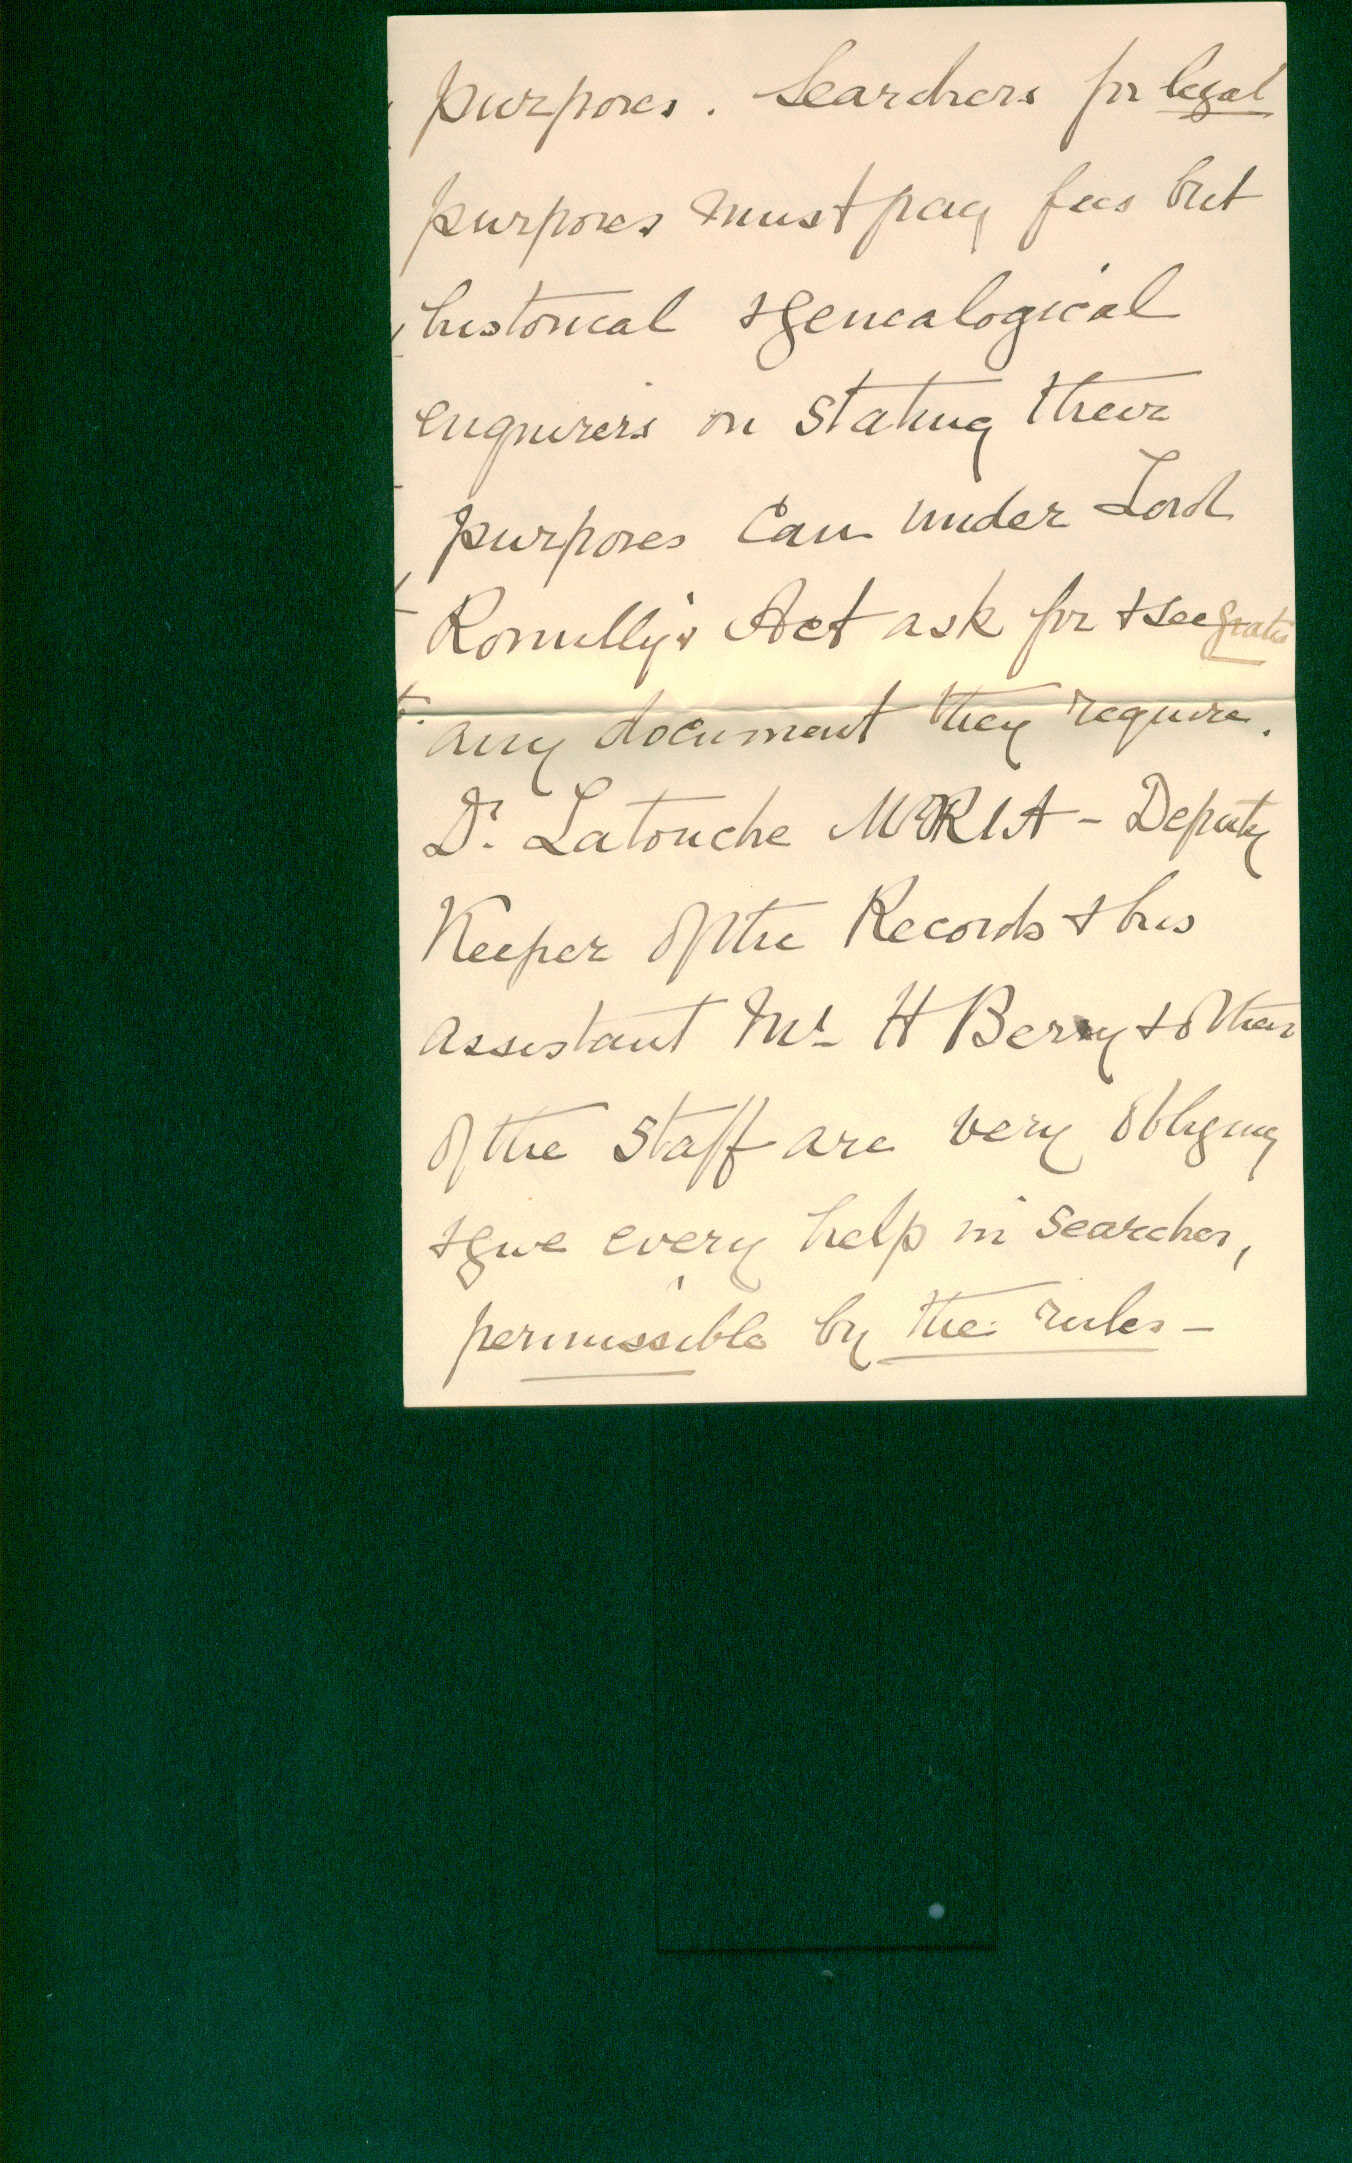 purposes. Searchers for legal
purposes must pay fees but
historical & genealogical
enquirers on stating their
purposes can under Lord
Romilly's Act ask for & see gratis
any document they require.
Dr. Latouche MRIA - Deputy
Keeper of the Records & his
assistant Mr H Berry & others
of the Staff are very obliging
& give every help in searches,
permissible by the rules -